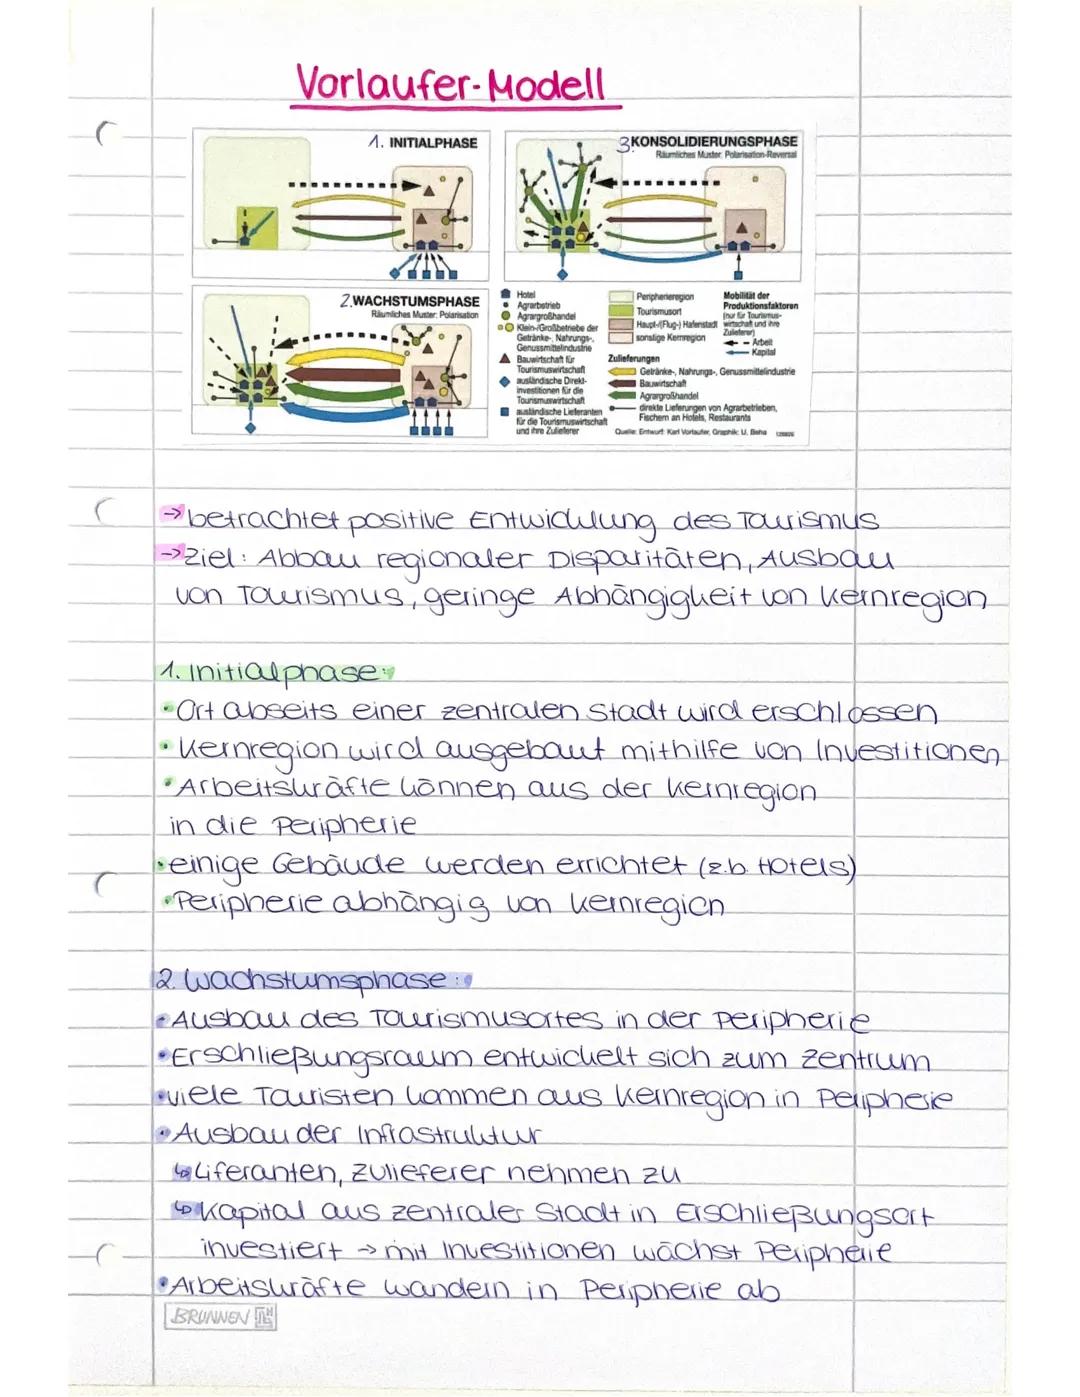 Vorlaufer-Modell
1. INITIALPHASE
3. KONSOLIDIERUNGSPHASE
Räumliches Muster: Polarisation-Reversal
2. WACHSTUMSPHASE
Räumliches Muster: Polarisation
Hotel
Agrarbetrieb
Agrargroßhandel
Klein-/Großbetriebe der
Getränke-, Nahrungs-,
Genussmittelindustrie
Bauwirtschaft für
Tourismuswirtschaft
ausländische Direkt-
investitionen für die
Tourismuswirtschaft
ausländische Lieferanten
für die Tourismuswirtschaft
und ihre Zulieferer
Peripherieregion
Tourismusort
Haupt-/(Flug-) Hafenstadt
sonstige Kernregion
Mobilität der
Produktionsfaktoren
(nur für Tourismus-
wirtschaft und ihre
Zulieferer)
Arbeit
Kapital
Zulieferungen
Getränke-, Nahrungs-, Genussmittelindustrie
Bauwirtschaft
Agrargroßhandel
direkte Lieferungen von Agrarbetrieben,
Fischern an Hotels, Restaurants
Quelle: Entwurf: Karl Vorlaufer, Graphik: U. Beha
→ betrachtet positive Entwicklung des Tourismus
→ Ziel: Abbau regionaler Disparitäten, Ausbau
von Tourismus, geringe Abhängigkeit von Kernregion
1. Initialphase:
• Ort abseits einer zentralen Stadt wird erschlossen
• Kernregion wird ausgebaut mithilfe von Investitionen
• Arbeitskräfte können aus der Kernregion
in die Peripherie
• einige Gebäude werden errichtet (z.b. Hotels)
• Peripherie abhängig von Kernregion
2. Wachstumsphase:
• Ausbau des Tourismusortes in der Peripherie
• Erschließungsraum entwickelt sich zum Zentrum
• viele Touristen kommen aus Kernregion in Peripherie
• Ausbau der Infrastruktur
↳ Liferanten, Zulieferer nehmen zu
↳ Kapital aus zentraler Stadt in Erschließungsort
investiert → mit Investitionen wächst Peripherie
• Arbeitskräfte wandern in Peripherie ab
BRUNNEN